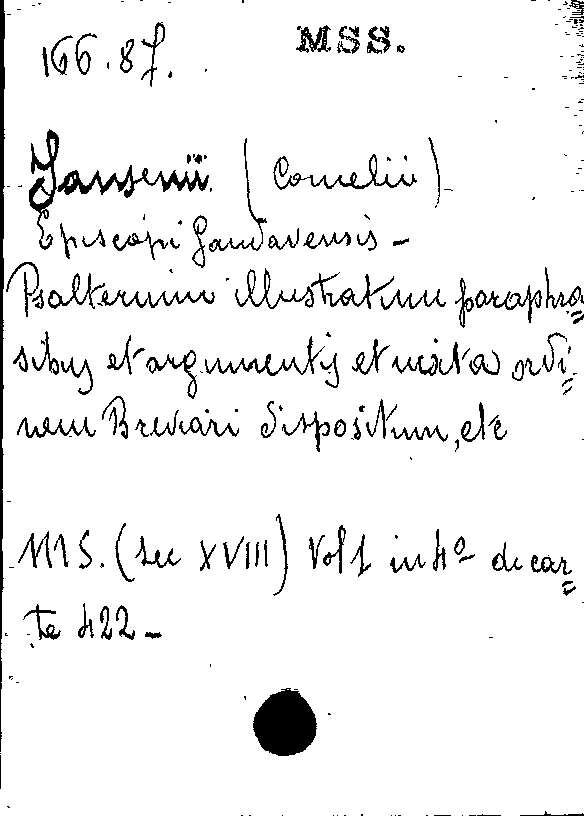 166.87.
MSS.
Jansenii (Cornelii)
Episcopi Gandavensis -
Psalterium illustratum paraphra=
sibus et argumentis et iuxta ordi=
nem Breviari dispositum, etc
MS. (sec XVIII) Vol 1 in 4º di car=
te 422 -